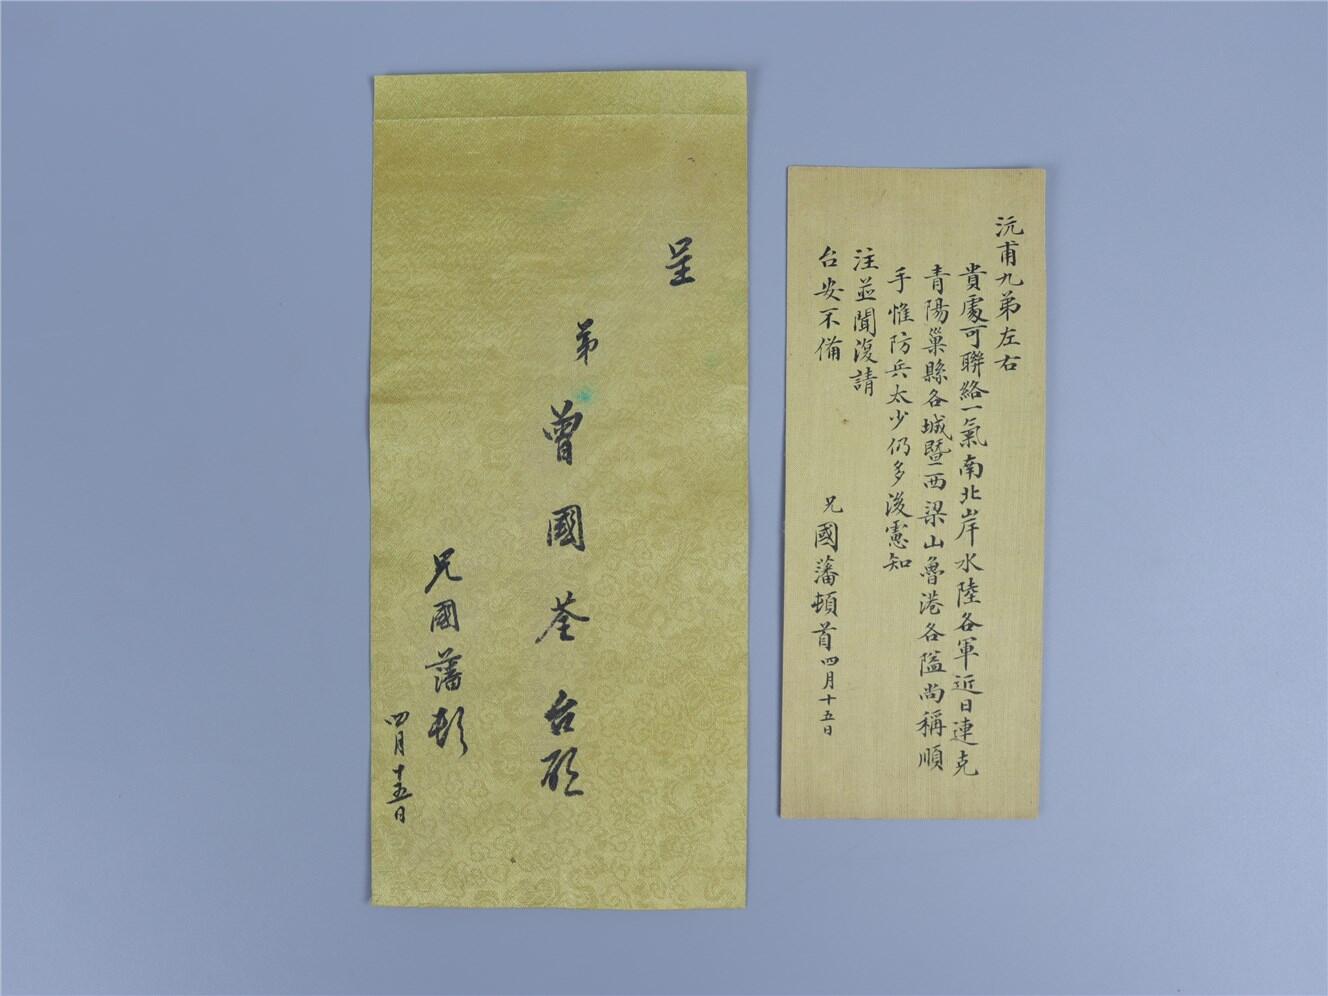 呈
弟曾國荃台啟
兄國藩頓
四月十五日
沅甫九弟左右
貴處可聯絡一氣南北岸水陸各軍近日連克
青陽巢縣各城暨西梁山魯港各隘尚稱順
手惟防兵太少仍多後憲知
注並聞復請
台安不備
兄國藩頓首四月十五日